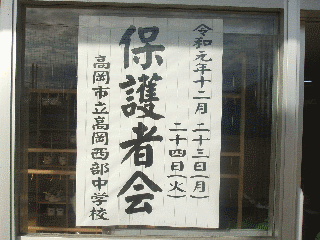 令和元年十二月 二十三日(月)
二十四日(火)
保護者会
高岡市立高岡西部中学校